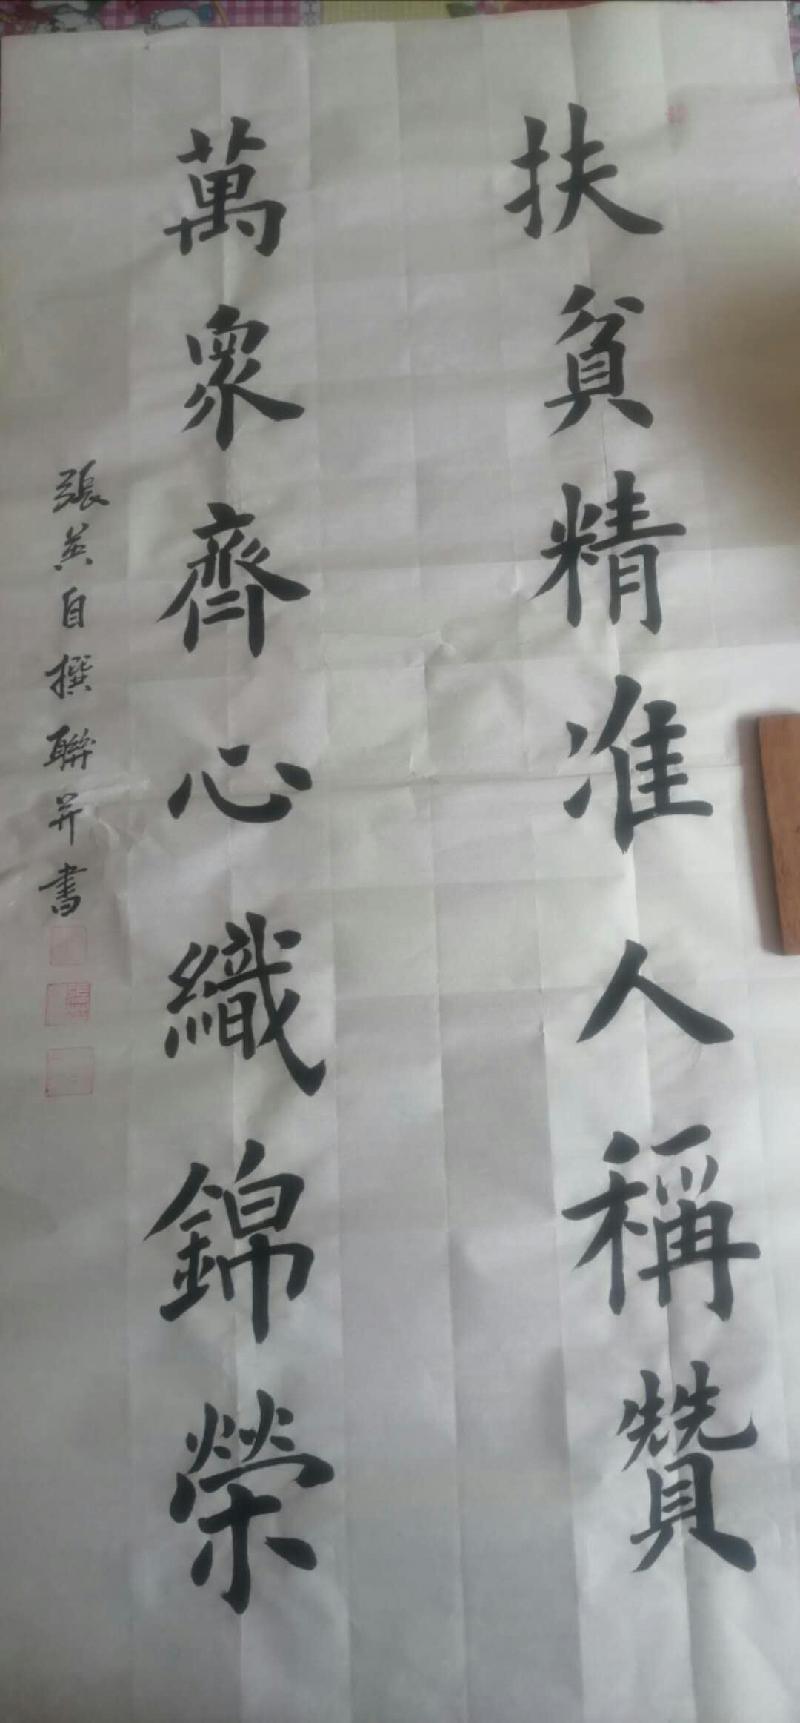 扶貧精准人稱贊
萬眾齊心織錦榮
張英自撰聯并書